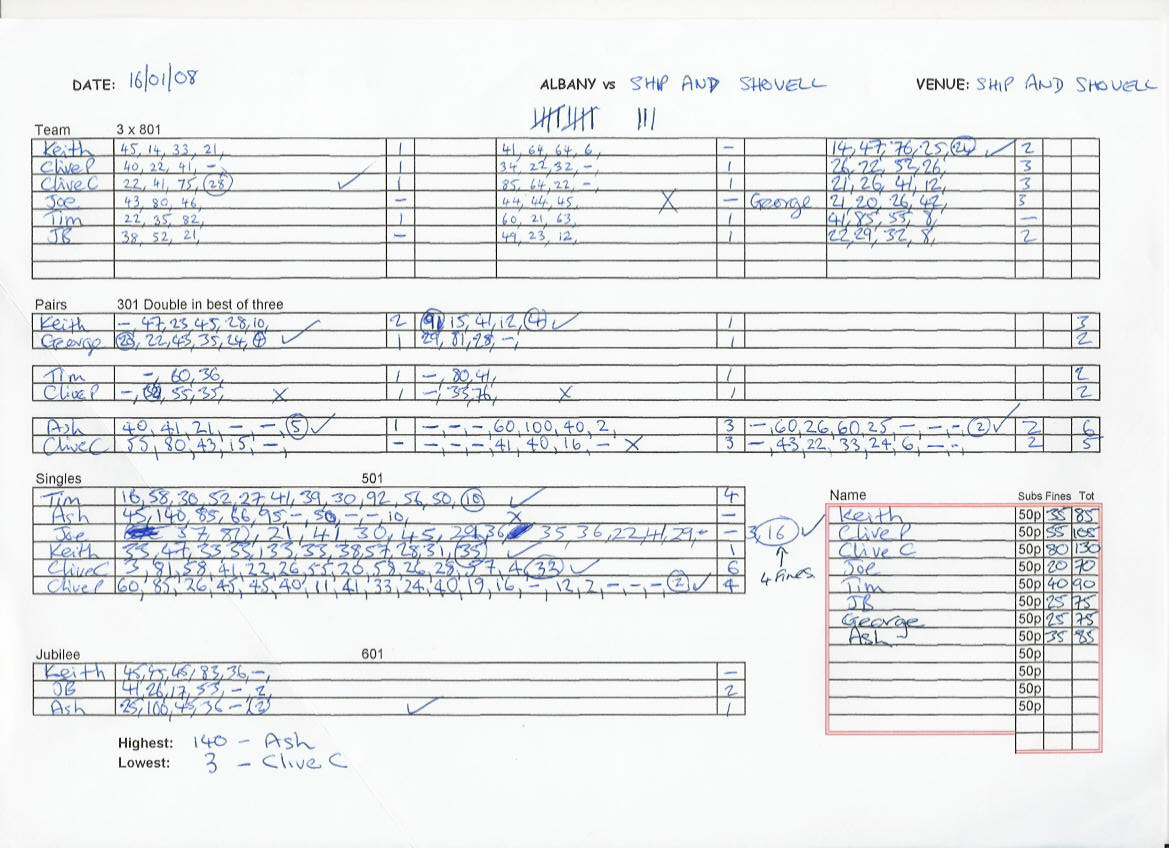 DATE: 16/01/08 ALBANY vs SHIP AND SHOVELL VENUE: SHIP AND SHOVELL
Team 3 x 801
Keith 45, 14, 33, 21, 1 41, 64, 64, 6, - 14, 47, 76, 25, 24 ✓ 2
Clive P 40, 22, 41, - 1 34, 22, 32, - 1 26, 22, 52, 26, 3
Clive C 22, 41, 75, 28 ✓ 1 85, 64, 22, -, 1 21, 26, 41, 12, 3
Joe 43, 80, 46, - 44, 44, 45, X - George 21, 20, 26, 42, 3
Tim 22, 35, 82, 1 60, 21, 63, 1 41, 85, 55, 8, -
JB 38, 52, 21, - 49, 23, 12, 1 22, 29, 32, 8, 2
Pairs 301 Double in best of three
Keith -, 47, 23, 45, 28, 10, 2 15, 41, 12, 4 ✓ 1 3
George 22, 43, 35, 24, ✓ 1 29, 81, 28, -, 1 2
Tim -, 60, 36, 1 -, 80, 41, 1 2
Clive P -, 55, 35, X 1 -, 35, 76, X 1 2
Ash 40, 41, 21, -, -, 5 ✓ 1 -, -, -, 60, 100, 40, 2, 3 -, 60, 26, 60, 25, -, -, -, 2 ✓ 2 6
Clive C 55, 80, 43, 15, -, - -, -, -, 41, 40, 16, - X 3 -, 43, 22, 33, 24, 6, -, -, 2 5
Singles 501
Tim 16, 58, 30, 52, 27, 41, 39, 30, 92, 56, 50, 10 ✓ 4
Ash 45, 140, 85, 66, 95 -, -, -, 10, X -
Joe 57, 21, 41, 30, 45, 29, 36 35, 36, 22, 41, 29, - - 3, 16 ✓
Keith 38, 57, 28, 31, 35 ✓ 1
4 Fines
Clive C 3, 81, 58, 41, 22, 26, 55, 26, 58, 26, 28, 4, 32 ✓ 6
Clive P 60, 85, 26, 45, 45, 40, 11, 41, 33, 24, 40, 19, 16, -, 12, 2, -, -, -, 2 ✓ 4
Name Subs Fines Tot
Keith 50p 35 85
Clive P 50p 55 105
Clive C 50p 80 130
Joe 50p 20 70
Tim 50p 40 90
JB 50p 25 75
George 50p 25 75
Ash 50p 35 85
50p
50p
50p
50p
Jubilee 601
Keith 45, 45, 45, 83, 36, -, -
JB 41, 26, 17, 53, -, 2, 2
Ash 25, 100, 45, 36 - ✓ 1
Highest: 140 - Ash
Lowest: 3 - Clive C